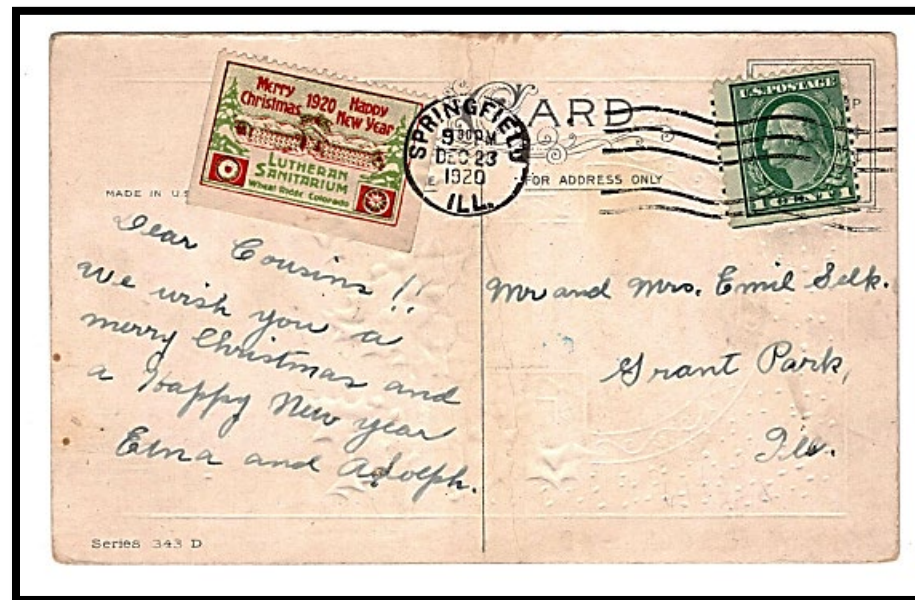 Merry Christmas 1920 Happy New Year
LUTHERAN
SANITARIUM
Wheat Ridge Colorado
SPRINGFIELD
9 30 PM
DEC 23
1920
ILL.
ARD
FOR ADDRESS ONLY
U.S. POSTAGE
1 CENT 1
MADE IN U.S
Dear Cousins!!
We wish you a
merry Christmas and
a Happy New year
Elna and Adolph.
Mr and Mrs. Emil Selk.
Grant Park,
Ills.
Series 343 D